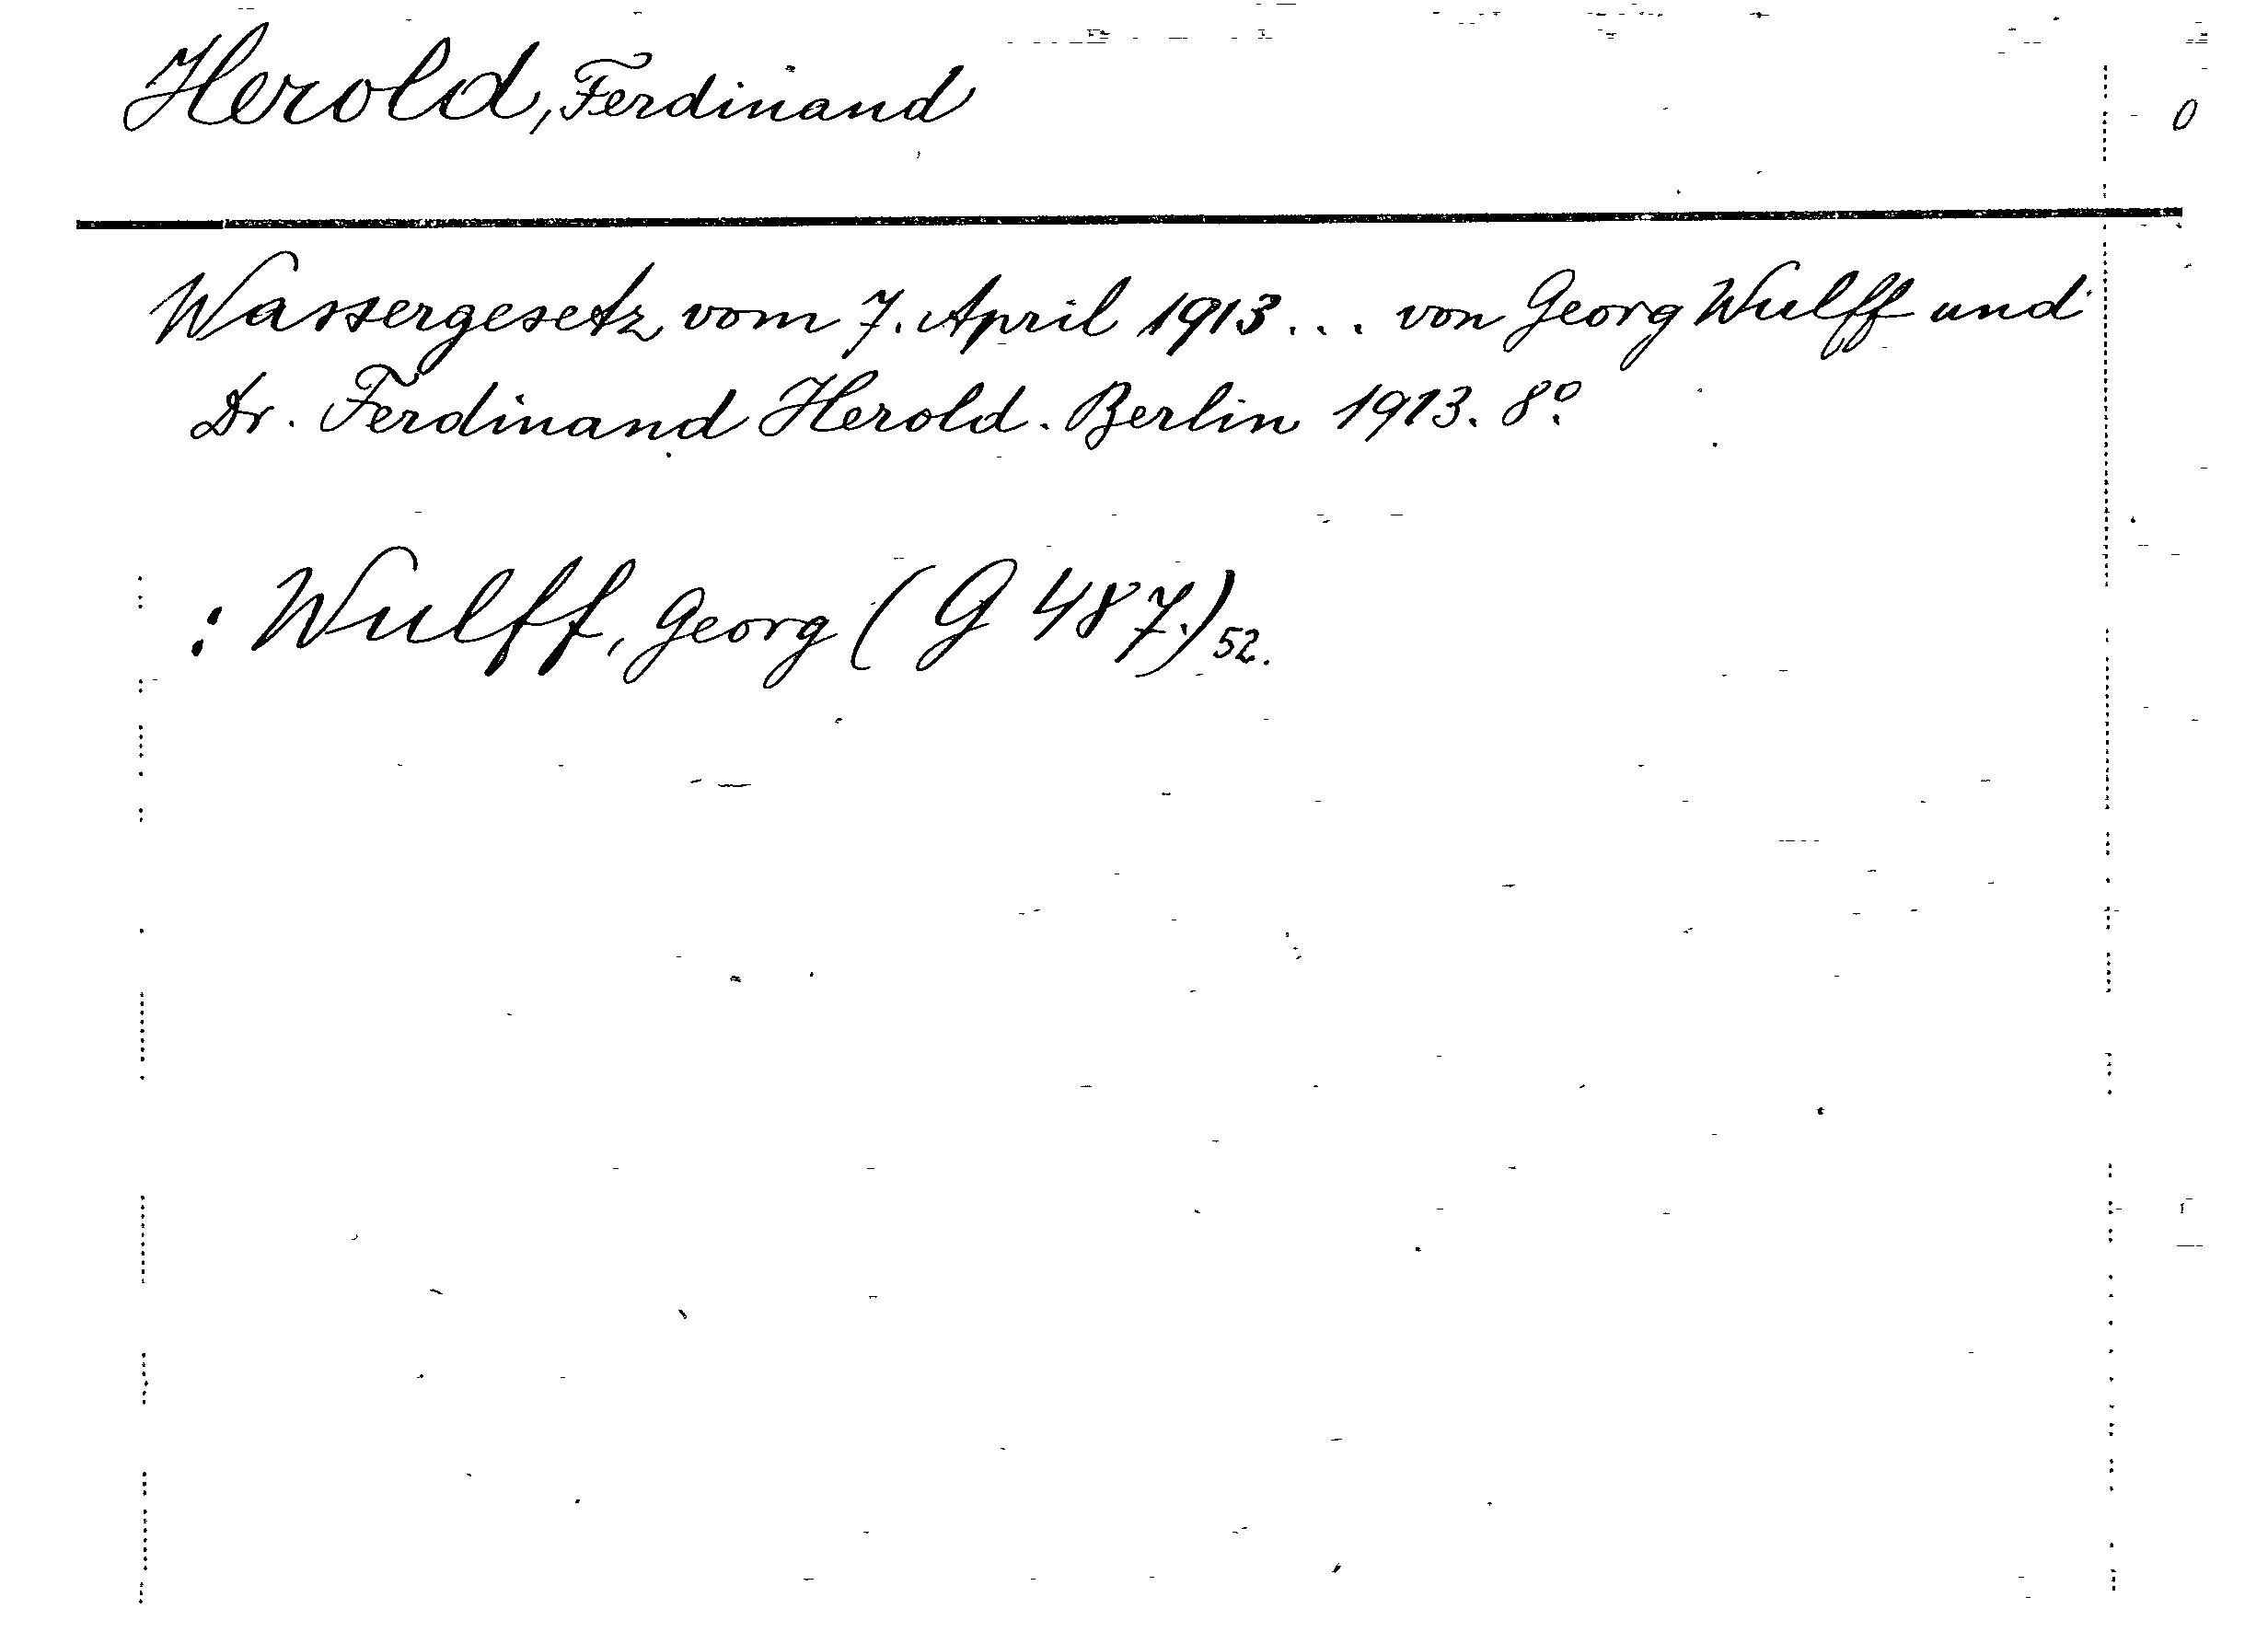 Herold, Ferdinand
0
Wassergesetz vom 7. April 1913... von Georg Wulff und
Dr. Ferdinand Herold. Berlin 1913. 8º.
: Wulff, Georg (G 487.) 52.